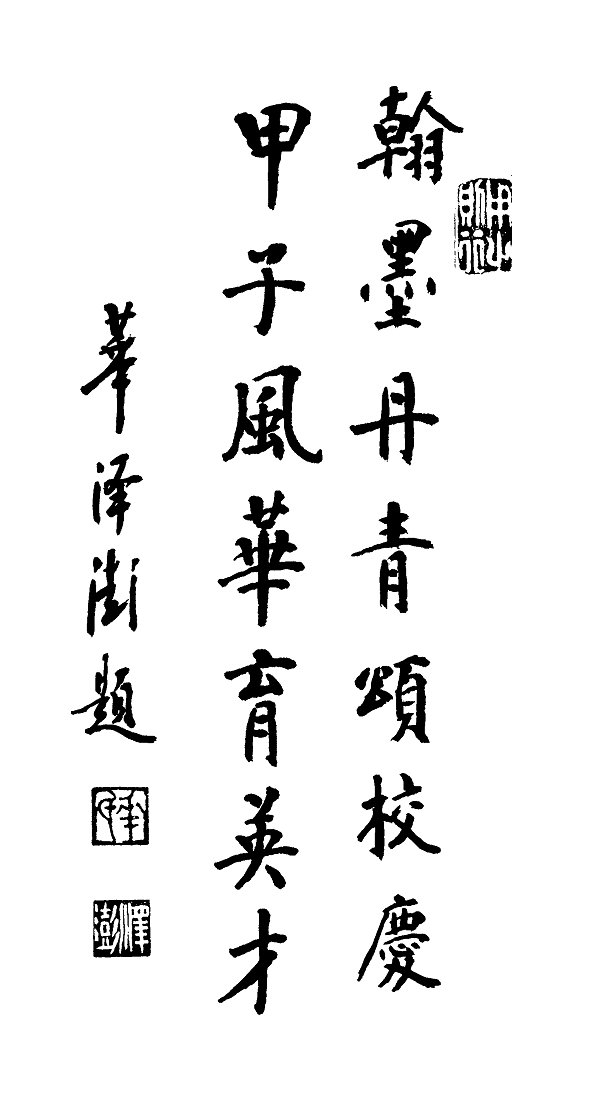 翰墨丹青頌校慶
甲子風華育英才
華泽澎題
澤澎